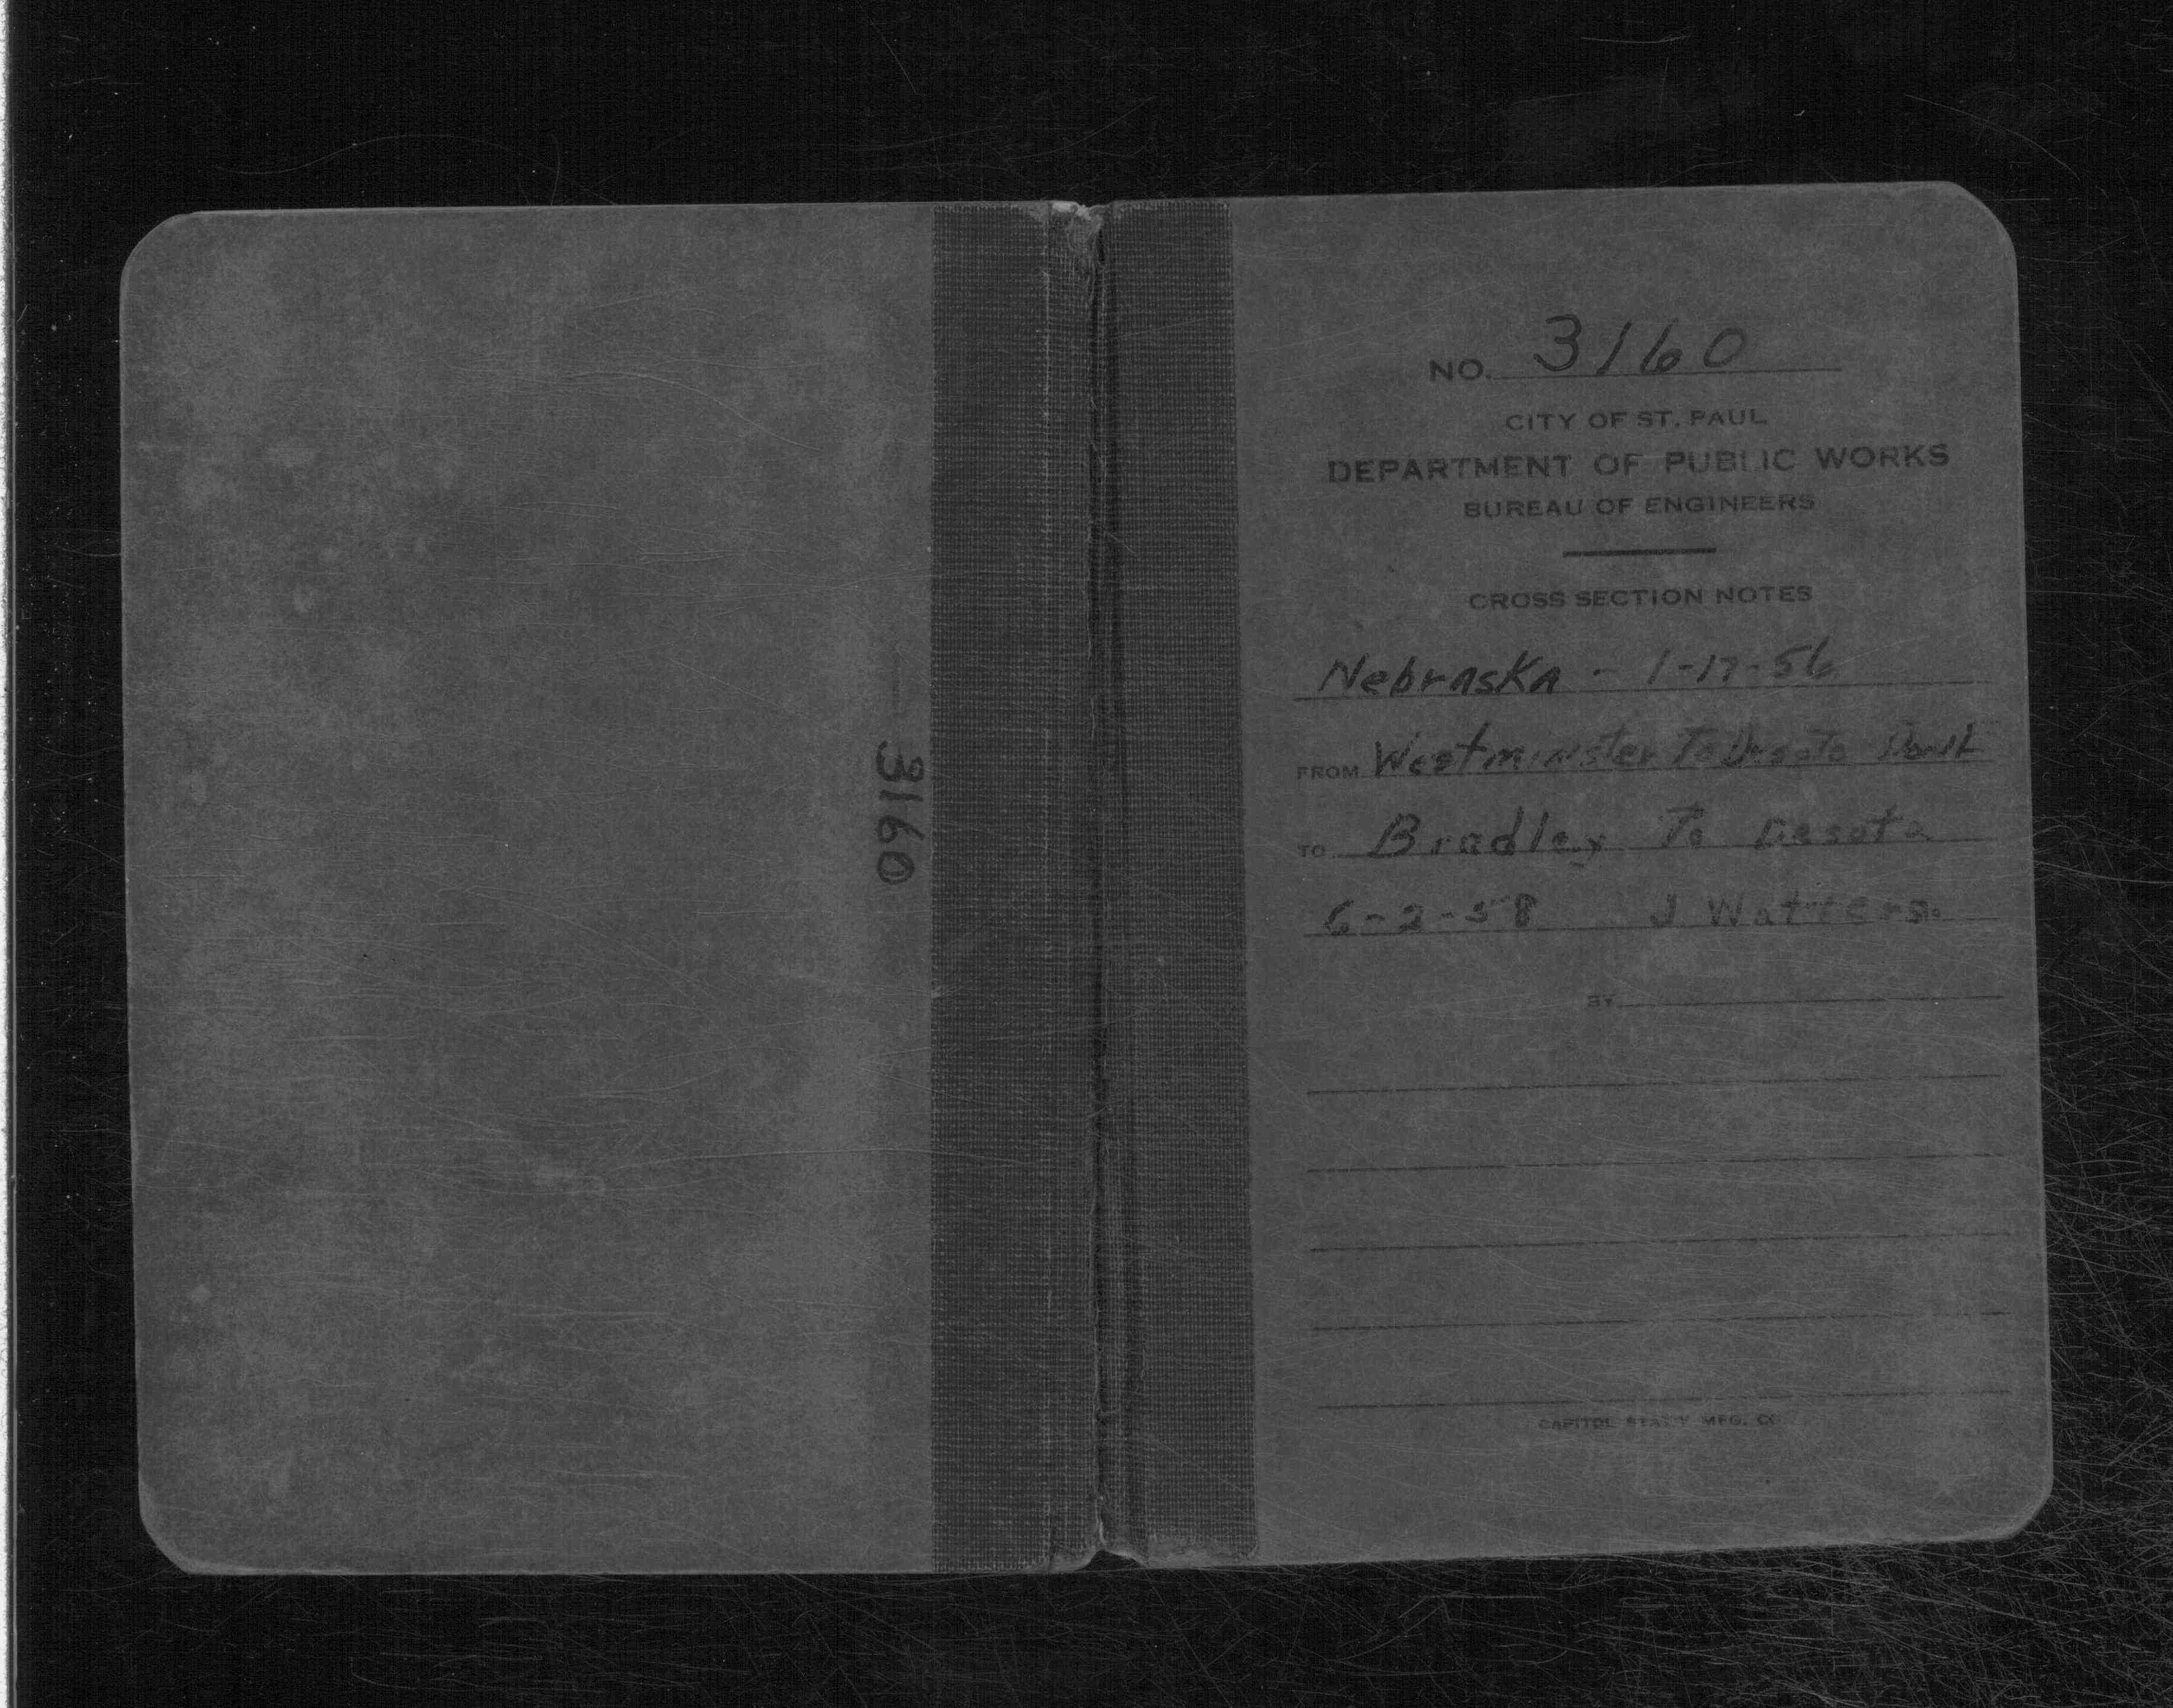 3160
NO. 3160
CITY OF ST. PAUL
DEPARTMENT OF PUBLIC WORKS
BUREAU OF ENGINEERS
CROSS SECTION NOTES
Nebraska - 1-17-56
FROM Westminster To Desoto
TO Bradley To Desota
6-2-58 J Watters.
BY
CAPITOL STA'Y MFG. CO